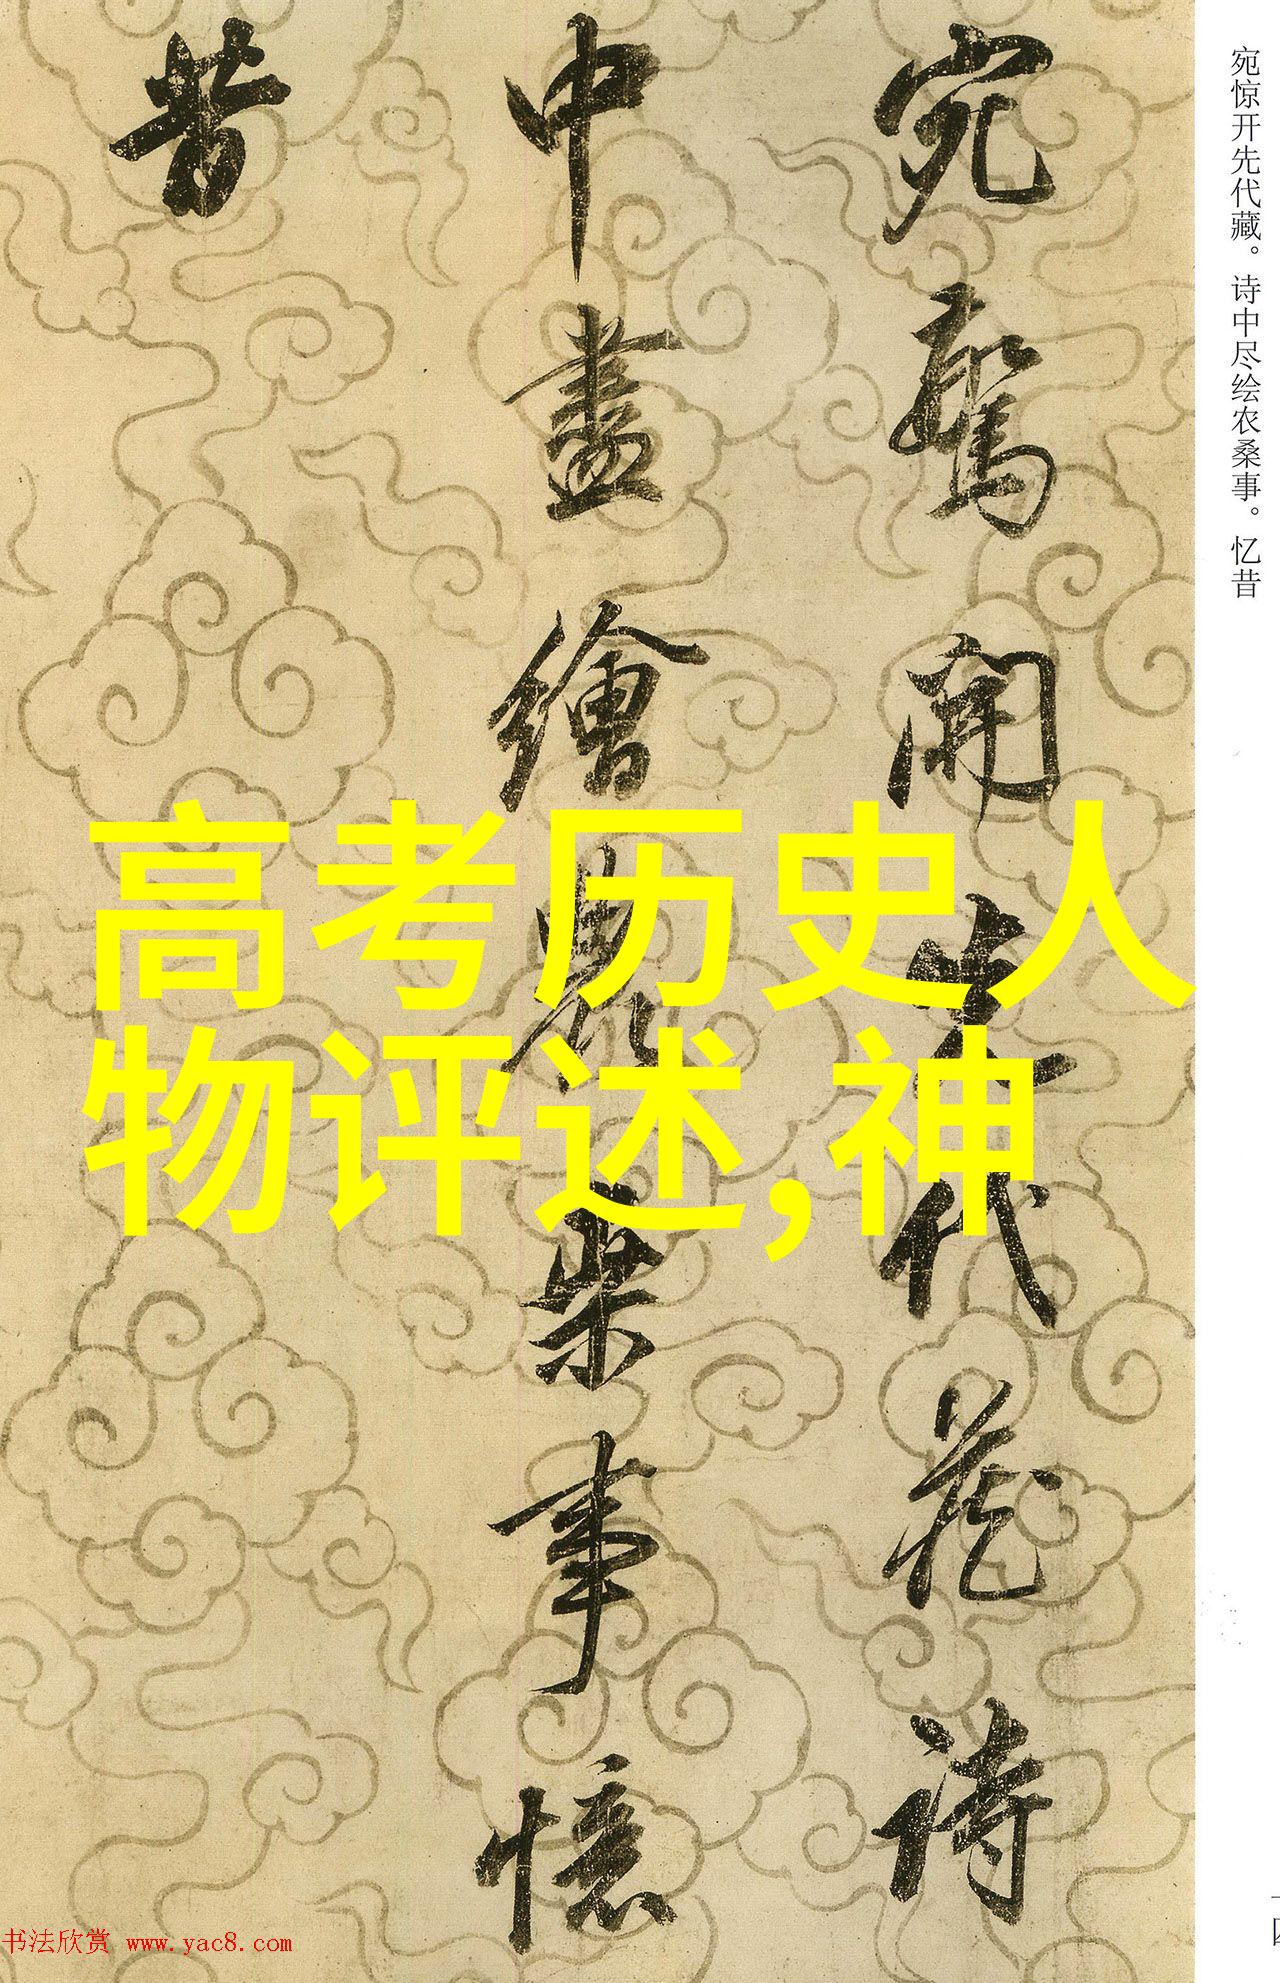 宛驚開先代藏詩
中盡繪農桒事憶
昔
宛惊开先代藏。诗中尽绘农桑事。忆昔
高考历史人
物评述,神
书法欣赏 www.yac8.com